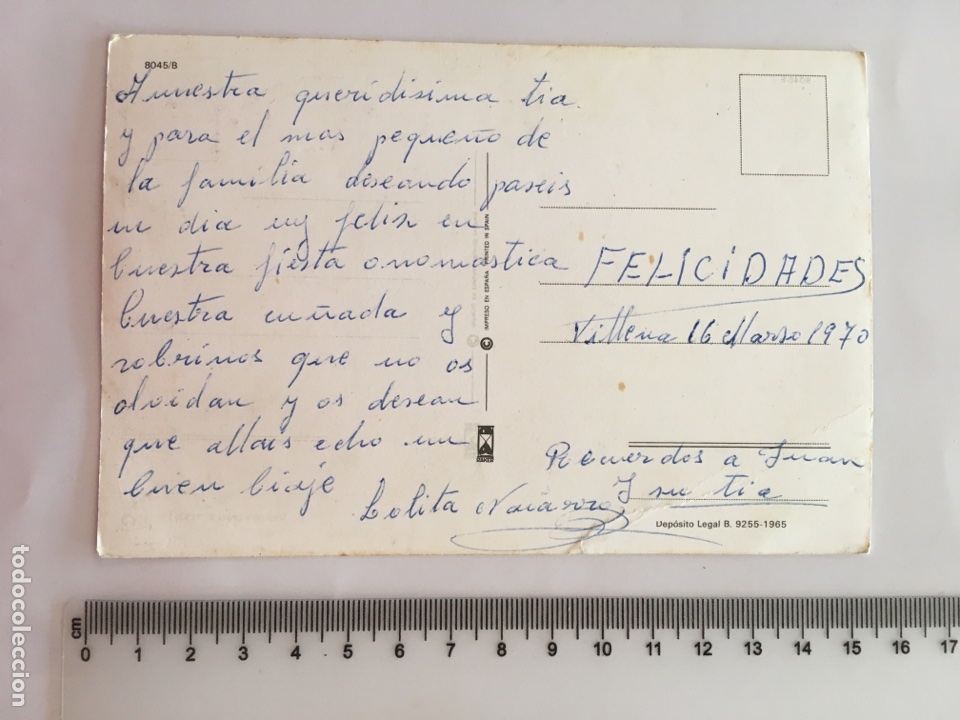 8045/B
A nuestra queridisima tia
y para el mas pequeño de
la familia deseando paseis
un dia uy felix en
buestra fiesta onomastica
buestra cuñada y
sobrinos que no os
olvidan y os desean
que allais echo un
buen biaje
Lolita Navarro
IMPRESO EN ESPAÑA PRINTED IN SPAIN
FELICIDADES
Villena 16 Marso 1970
Recuerdos a Juan
Y su tia
Depósito Legal B. 9255-1965
cm
0 1 2 3 4 5 6 7 8 9 10 11 12 13 14 15 16 17
todocoleccion